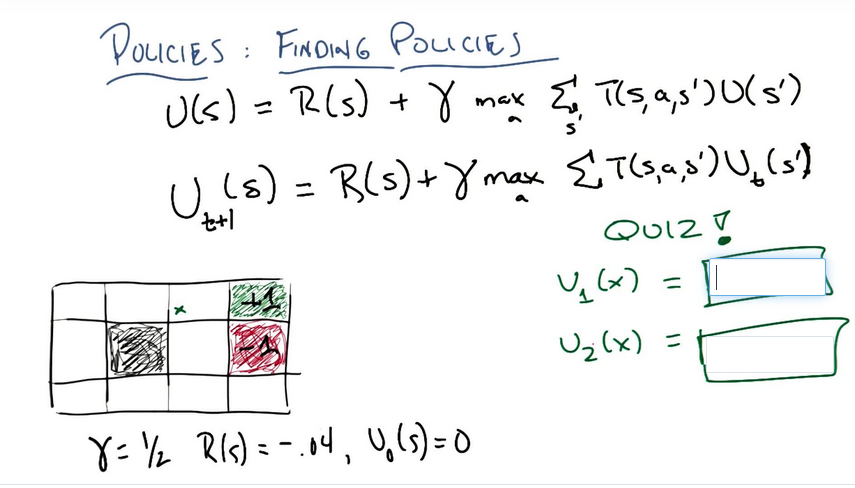 POLICIES : FINDING POLICIES
U(s) = R(s) + γ max_a Σ_s' T(s,a,s')U(s')
U_t+1(s) = R(s) + γ max_a Σ T(s,a,s')U_t(s')
QUIZ!
U_1(x) =
U_2(x) =
+1
x
-1
γ = 1/2 R(s) = -.04, U_0(s) = 0